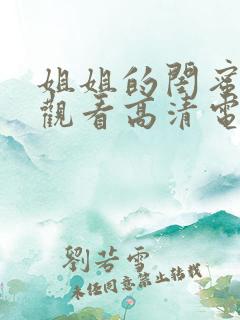 姐姐的閨蜜
觀看高清電
劉芳雪
未經同意禁止轉載